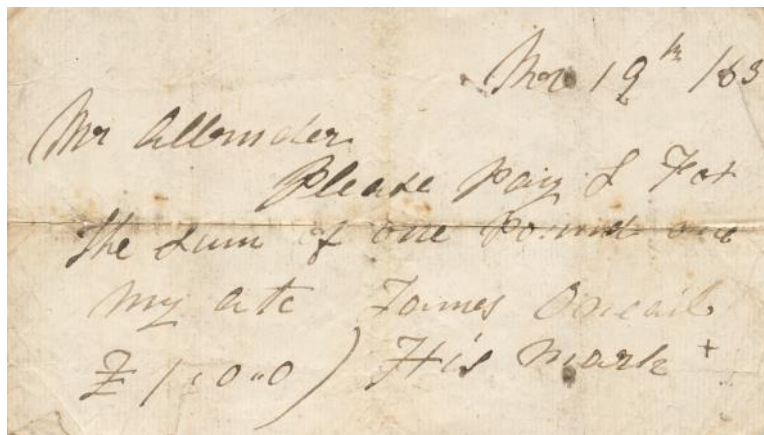 Nov 19th 183
Mr Allender
Please pay S Fox
the Sum of one Pound one
my atc James Oneail
£1,,0,,0) His mark +